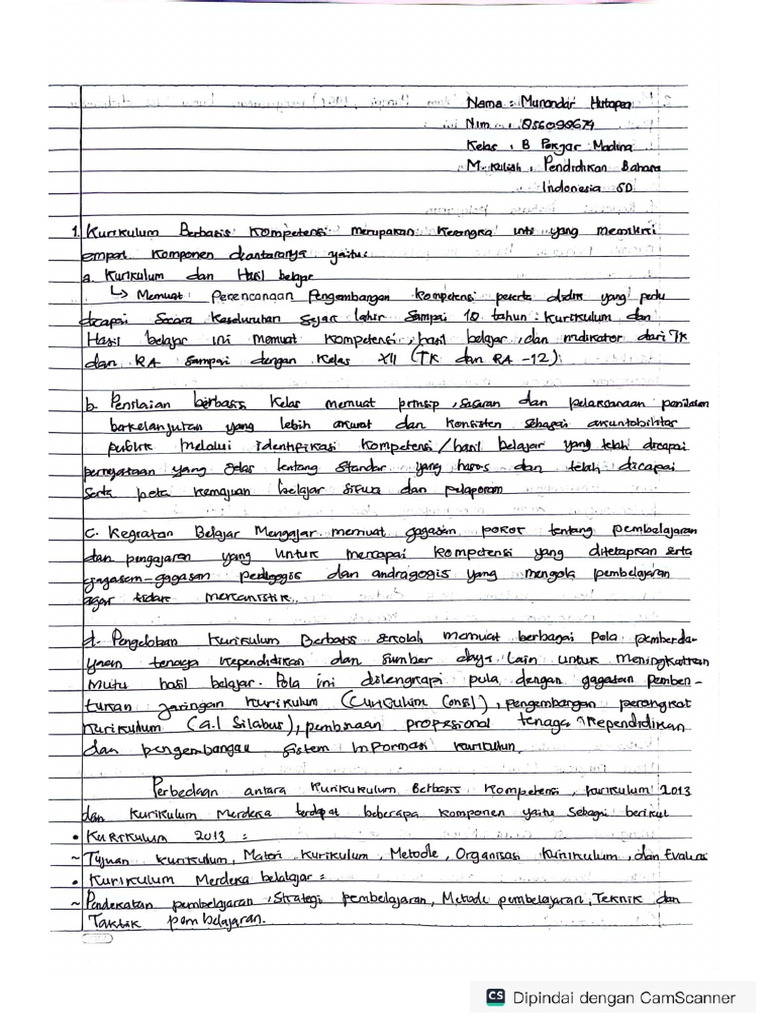 Nama : Munandar Hutapea
Nim : 856090679
Kelas : B Pokjar Madina
M. Kuliah : Pendidikan Bahasa
Indonesia SD
1. Kurikulum Berbasis Kompetensi merupakan kerangka inti yang memiliki
empat komponen diantaranya yaitu:
a. Kurikulum dan Hasil belajar
↳ Memuat Perencanaan Pengembangan kompetensi peserta didik yang perlu
dicapai secara keseluruhan sejak lahir sampai 18 tahun : kurikulum dan
Hasil belajar ini memuat kompetensi, hasil belajar, dan indikator dari TK
dan RA sampai dengan kelas XII (TK dan RA -12).
b. Penilaian berbasis kelas memuat prinsip, sasaran dan pelaksanaan penilaian
berkelanjutan yang lebih akurat dan konsisten sebagai akuntabilitas
publik melalui identifikasi kompetensi/hasil belajar yang telah dicapai
pernyataan yang jelas tentang standar yang harus dan telah dicapai
serta peta kemajuan belajar siswa dan pelaporan
c. Kegiatan Belajar Mengajar memuat gagasan pokok tentang pembelajaran
dan pengajaran yang untuk mencapai kompetensi yang ditetapkan serta
gagasan-gagasan pedagogis dan andragogis yang mengola pembelajaran
agar tidak mekanistik.
d. Pengelolaan Kurikulum Berbasis sekolah memuat berbagai pola pemberda-
yaan tenaga kependidikan dan sumber daya lain untuk meningkatkan
mutu hasil belajar. Pola ini dilengkapi pula dengan gagasan pemben-
tukan jaringan kurikulum (Curiculum Consil), pengembangan perangkat
kurikulum (a.l Silabus), pembinaan propesional tenaga kependidikan
dan pengembangan sistem informasi kurikulum
Perbedaan antara Kurikukulum Berbasis Kompetensi, kurikulum 2013
dan Kurikulum Merdeka terdapat beberapa komponen yaitu sebagai berikut
• Kurikulum 2013 :
~ Tujuan kurikulum, Materi kurikulum, Metode, Organisasi kurikulum, dan Evaluasi
• Kurikulum Merdeka belalajar :
~ Pendekatan pembelajaran, Strategi pembelajaran, Metode pembelajaran, Teknik dan
Taktik pembelajaran.
CS Dipindai dengan CamScanner